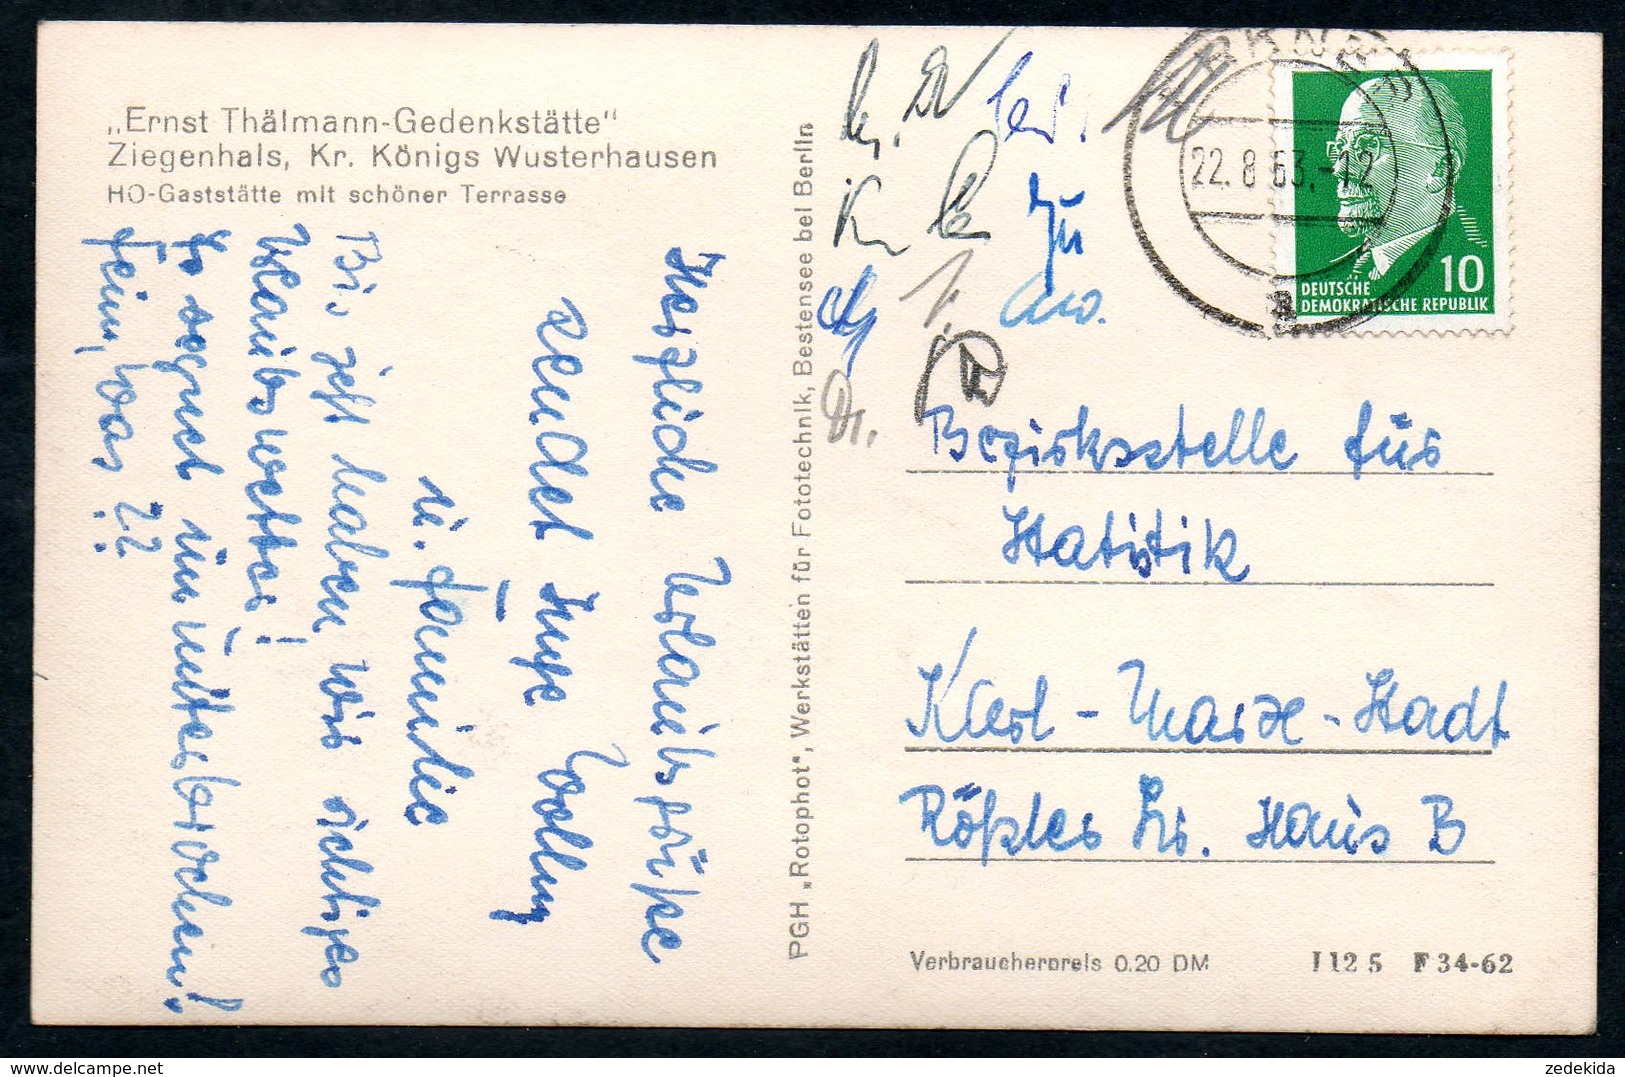 „Ernst Thälmann-Gedenkstätte"
Ziegenhals, Kr. Königs Wusterhausen
HO-Gaststätte mit schöner Terrasse
Herzliche Urlaubsgrüße
sendet Inge
u. Familie
Bis jetzt haben wir richtiges
Urlaubswetter!
Es regnet ununterbrochen!
Fein, was??
PGH „Rotophot", Werkstätten für Fototechnik, Bestensee bei Berlin
22.8.63.-12
a
10
DEUTSCHE
DEMOKRATISCHE REPUBLIK
Dr.
Bezirksstelle für
Statistik
Karl-Marx-Stadt
Rößler Str. Haus B
Verbraucherpreis 0.20 DM
I 12 5 F 34-62
zedekida